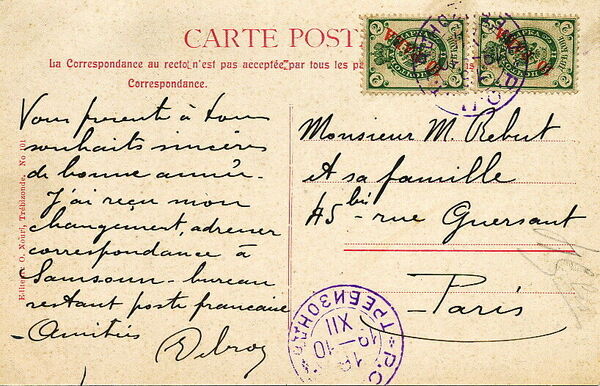 CARTE POST
La Correspondance au recto n'est pas acceptée par tous les pa
Correspondance.
Vous presente à tous
souhaits sincères
de bonne année.
J'ai reçu mon
changement, adresser
correspondance à
Samsoun - bureau
restant poste francaise
Amitiés
Editeur O. Nouri, Trébizonde, No 101
Monsieur M. Rebut
et sa famille
45 bis rue Guersant
Paris
ТРЕБИЗОНДЪ
Р.О.
XII